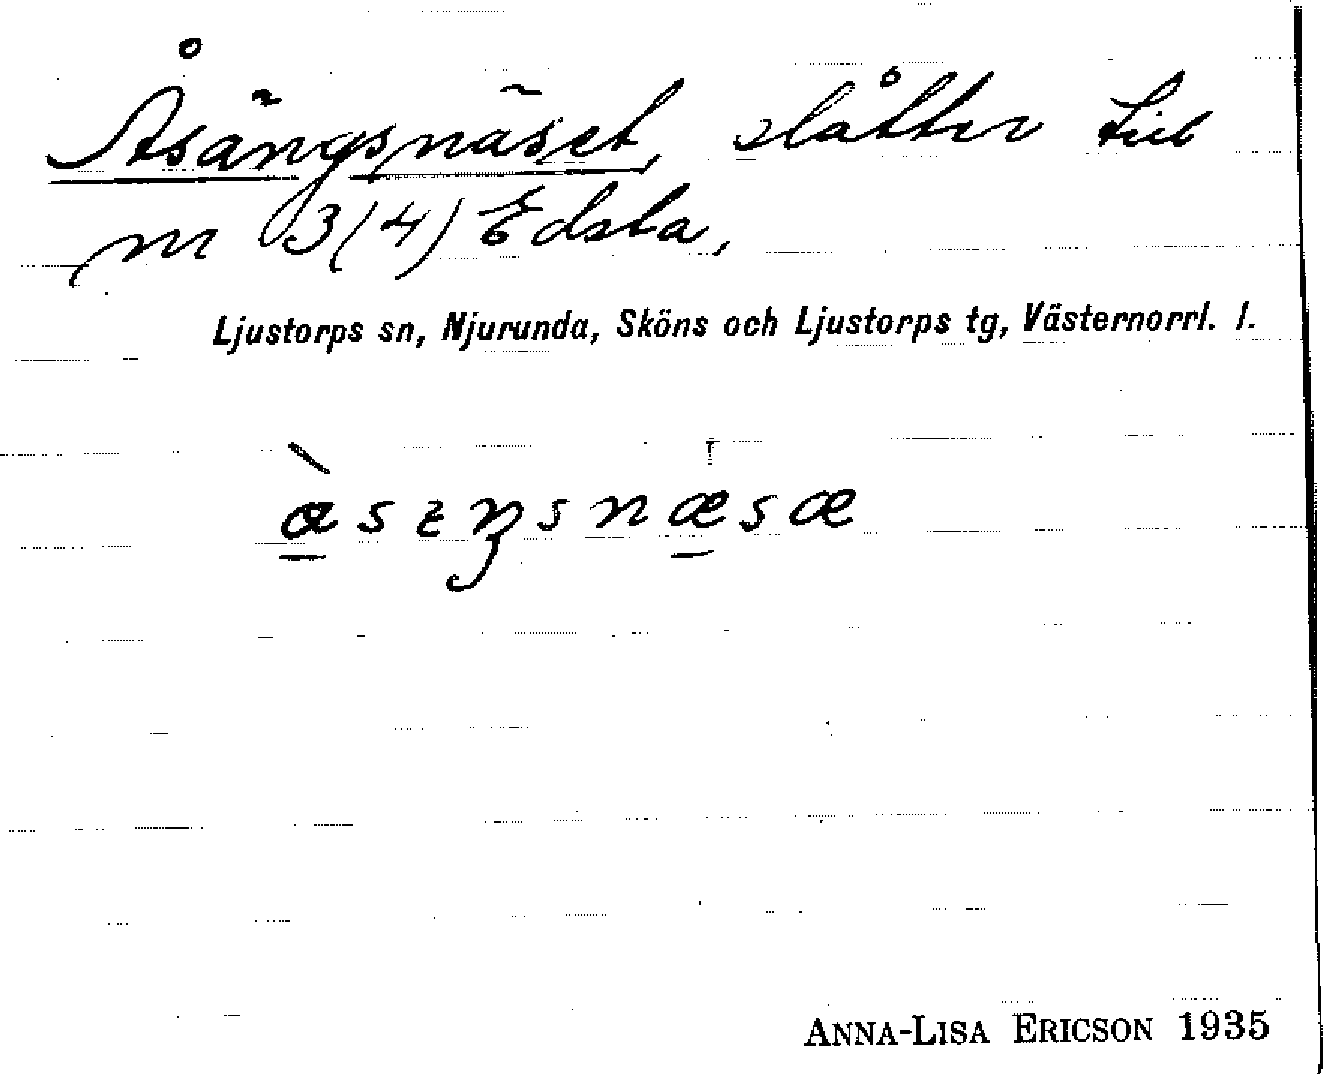 Åsängsnäset, slåtter till
m 3(4) Edsta,
Ljustorps sn, Njurunda, Sköns och Ljustorps tg, Västernorrl. l.
ANNA-LISA ERICSON 1935